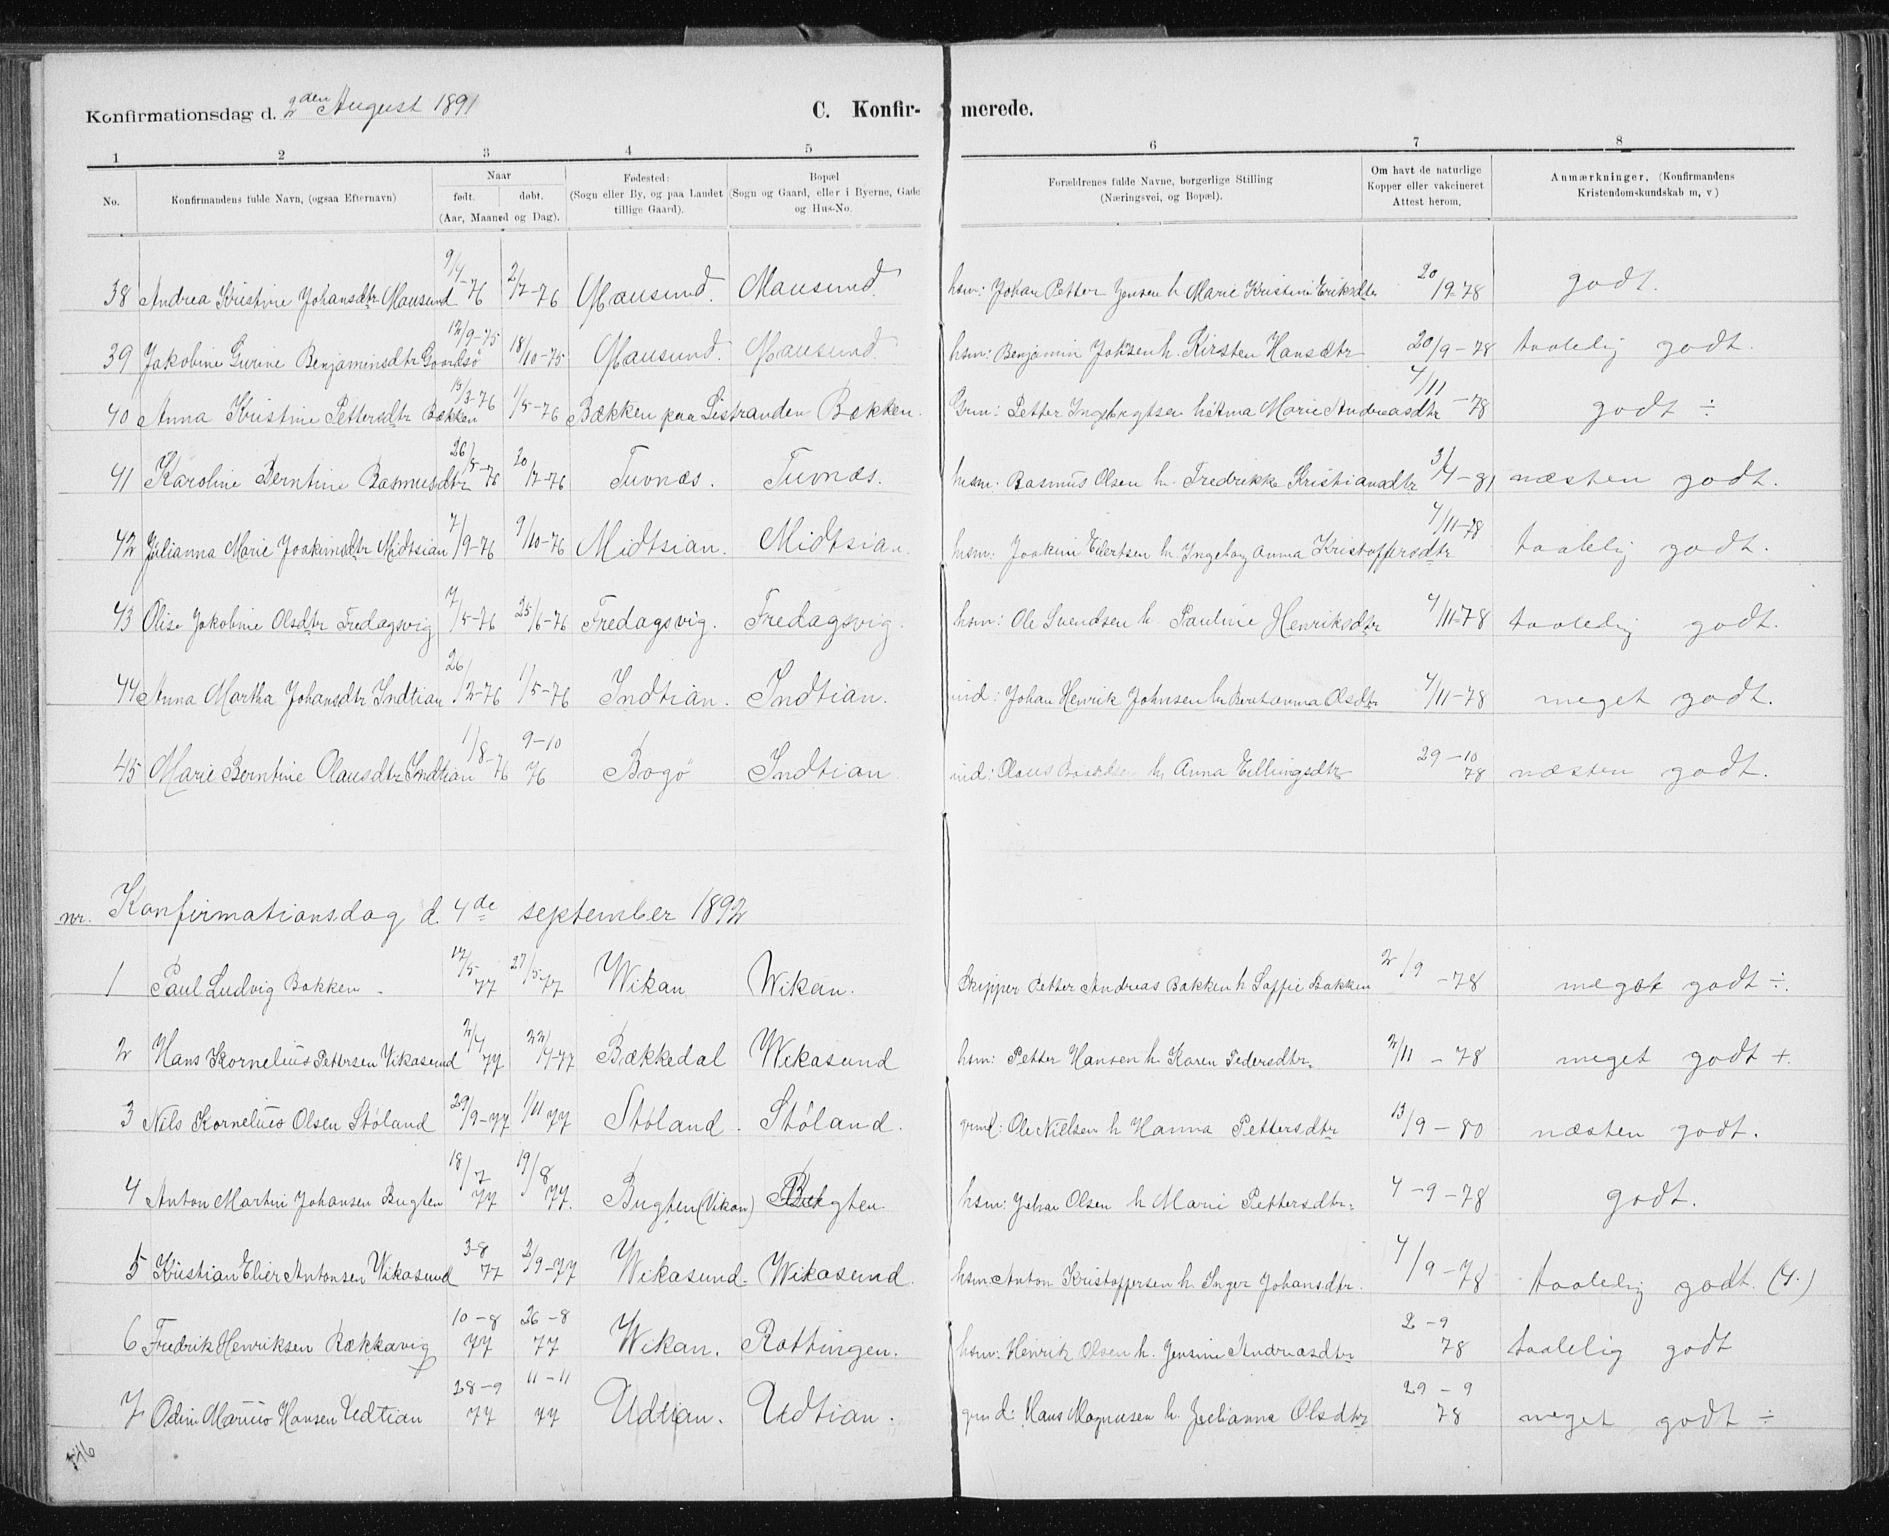 Konfirmationsdag d. 2den August 1891 C. Konfir- merede.
1 2 3 4 5 6 7 8
No. Konfirmandens fulde Navn, (ogsaa Efternavn) Naar født. døbt. (Aar, Maaned og Dag). Fødested: (Sogn eller By, og paa Landet tillige Gaard). Bopæl (Sogn og Gaard, eller i Byerne, Gade og Hus-No. Forældrenes fulde Navne, borgerlige Stilling (Næringsvei, og Bopæl). Om havt de naturlige Kopper eller vakcineret Attest herom. Anmærkninger. (Konfirmandens Kristendomskundskab m, v)
38 Andrea Kristine Johansdtr Mausund 9/4-76 2/7-76 Mausund. Mausund. hsm: Johan Petter Jensen h. Marie Kristine Eriksdtr 20/9-78 godt.
39 Jakobine Gurine Benjaminsdtr 12/9-75 18/10-75 Mausund. Mausund. hsm: Benjamin h. Kirsten Hansdtr 20/9-78 taalelig godt.
40 Anna Kristine Pettersdtr Bækken 15/3-76 1/5-76 Bækken paa Listranden Bækken. Grm: Petter Ingebrigtsen h. Anna Marie Andreasdtr 4/11-78 godt ÷
41 Karoline Berntine Rasmusdtr 26/5-76 20/7-76 Tuvnæs. Tuvnæs. husm. Rasmus Olsen h. Fredrikke Kristiansdtr 3/4-81 næsten godt.
42 Julianna Marie Joakimsdtr Midtsian 7/9-76 9/10-76 Midtsian. Midtsian. husm: Joakim Eilertsen h. Ingeborg Anna Kristoffersdtr 4/11-78 taalelig godt.
43 Olise Jakobine Olsdtr Fredagsvig 7/5-76 25/6-76 Fredagsvig. Fredagsvig. hsm: Ole Svendsen h. Pauline Henriksdtr 4/11-78 taalelig godt.
44 Anna Martha Johansdtr Indtian 26/2-76 1/5-76 Indtian. Indtian. ind: Johan Henrik Johnsen h. Olsdtr 4/11-78 meget godt.
45 Marie Berntine Olausdtr Indtian 1/8-76 9-10 76 Bogø Indtian ind: Olaus h. Anna Ellingsdtr 29-10 78 næsten godt.
nr. Konfirmationsdag d. 4de september 1892
1 Paul Ludvig Bakken - 17/5 77 27/5-77 Wikan Wikan. Skipper Petter Andreas Bakken h. Soffie Bakken 2/9-78 meget godt ÷.
2 Hans Kornelius Pettersen Vikasund 2/4 77 22/4-77 Bækkedal Wikasund hsm: Petter Hansen h. Karen Pedersdtr. 2/11-78 meget godt +.
3 Nils Kornelius Olsen Støland 29/9-77 1/11 77 Støland. Støland. grmd: Ole Nielsen h. Hanna Pettersdtr 13/9-80 næsten godt.
4 Anton Martin Johansen Bugten 18/7 77 19/8 77. Bugten (Vikan) Bugten. hsm: Johan Olsen h. Marie Pettersdtr. 4-9-78 godt.
5 Kristian Elier Antonsen Wikasund 3-8 77 2/9-77 Wikasund. Wikasund. hsm: Anton Kristoffersen h. Inger Johansdtr. 4/9-78 taalelig godt. (4.)
6 Fredrik Henriksen Rækkavig 10-8 77 26-8 77 Wikan. Rottingen. hsm: Henrik Olsen h. Jensine Andreasdtr 2-9 78 taalelig godt
7 Odin Marius Hansen Udtian 28-9 77 11-11 77 Udtian. Udtian. grmd: Hans Magnusen h. Julianna Olsdtr 29-9 78 meget godt ÷